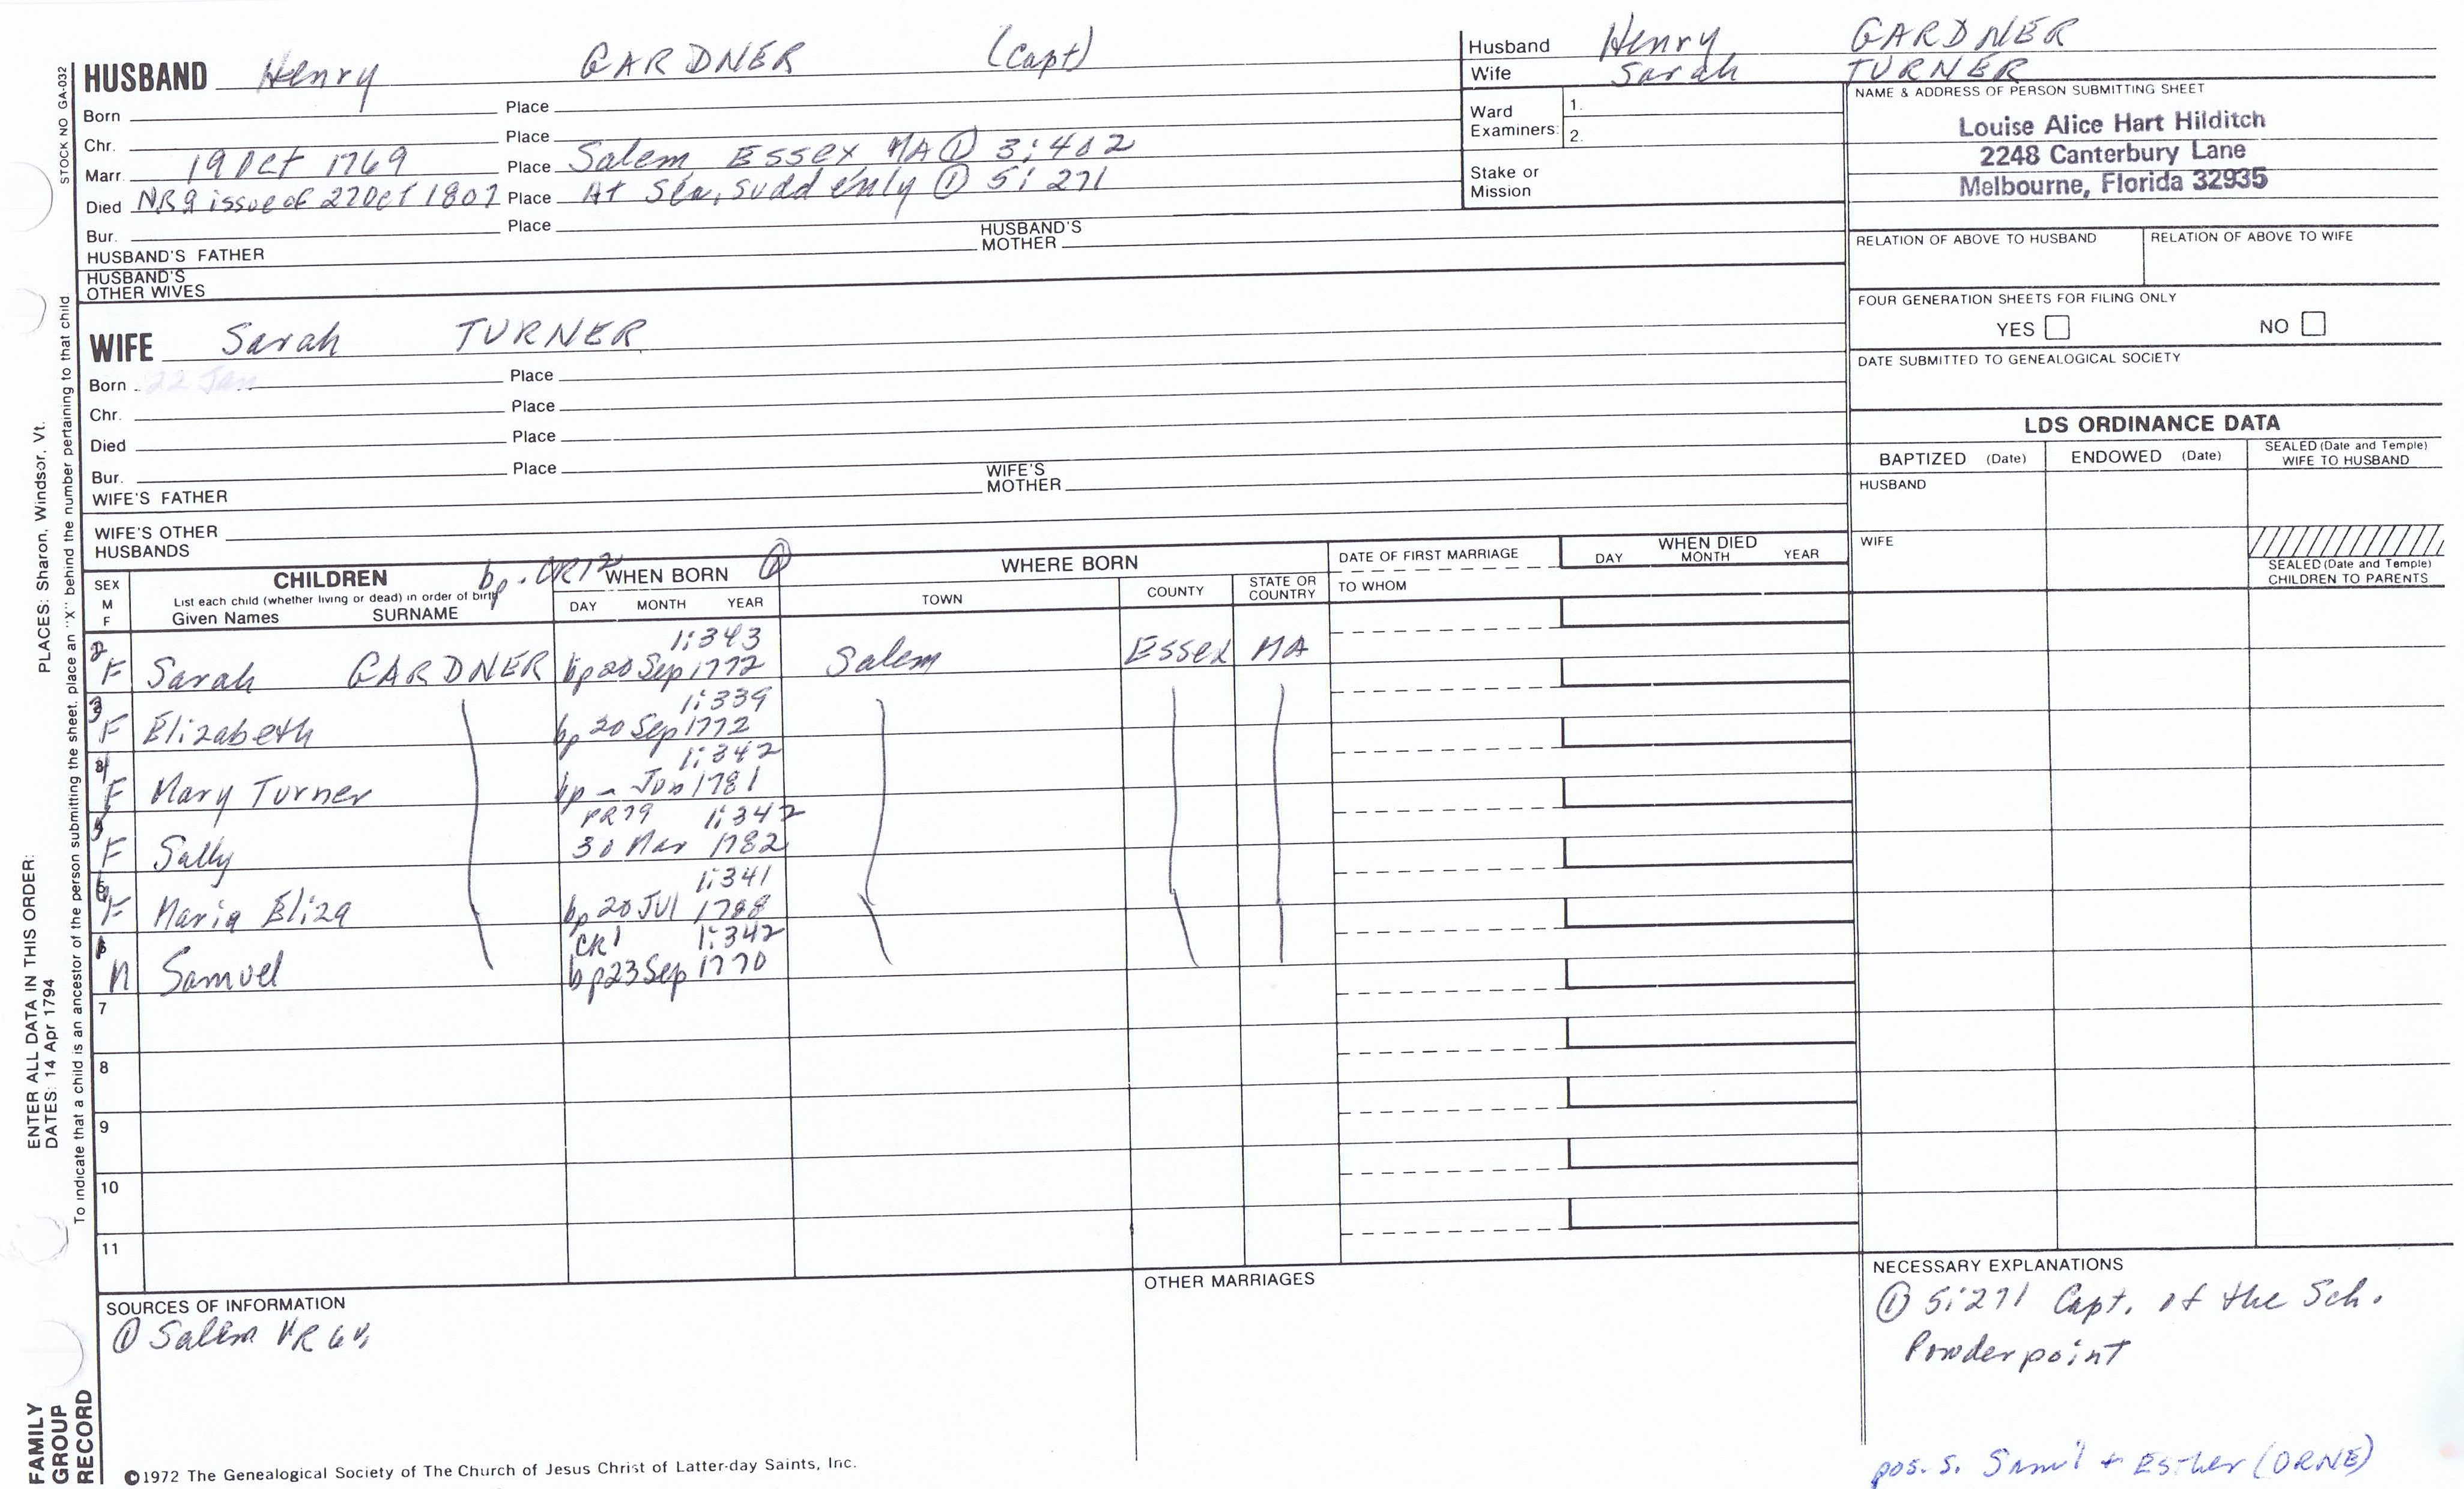 HUSBAND Henry GARDNER (Capt)
Born Place
Chr. Place
Marr. 19 Oct 1769 Place Salem Essex MA ① 3:402
Died NR9 issue of 27 Oct 1807 Place At Sea, suddenly ① 5:271
Bur. Place
HUSBAND'S FATHER HUSBAND'S MOTHER
HUSBAND'S OTHER WIVES
WIFE Sarah TURNER
Born 22 Jan Place
Chr. Place
Died Place
Bur. Place
WIFE'S FATHER WIFE'S MOTHER
WIFE'S OTHER HUSBANDS
Husband Henry GARDNER
Wife Sarah TURNER
Ward Examiners: 1.
2.
Stake or Mission
NAME & ADDRESS OF PERSON SUBMITTING SHEET
Louise Alice Hart Hilditch
2248 Canterbury Lane
Melbourne, Florida 32935
RELATION OF ABOVE TO HUSBAND RELATION OF ABOVE TO WIFE
FOUR GENERATION SHEETS FOR FILING ONLY
YES NO
DATE SUBMITTED TO GENEALOGICAL SOCIETY
LDS ORDINANCE DATA
BAPTIZED (Date) ENDOWED (Date) SEALED (Date and Temple) WIFE TO HUSBAND
HUSBAND
WIFE
SEALED (Date and Temple) CHILDREN TO PARENTS
SEX M F
CHILDREN
List each child (whether living or dead) in order of birth
Given Names SURNAME
bp. CR12 WHEN BORN ①
DAY MONTH YEAR
WHERE BORN
TOWN COUNTY STATE OR COUNTRY
DATE OF FIRST MARRIAGE
TO WHOM
WHEN DIED
DAY MONTH YEAR
1:343
2 F Sarah GARDNER bp 20 Sep 1772 Salem Essex MA
1:339
3 F Elizabeth bp 20 Sep 1772
1:342
F Mary Turner bp - Jun 1781
PR79 1:342
F Sally 30 Mar 1782
1:341
F Maria Eliza bp 20 Jul 1788
CR1 1:342
M Samuel bp 23 Sep 1770
7
8
9
10
11
SOURCES OF INFORMATION
① Salem VR 6v,
OTHER MARRIAGES
NECESSARY EXPLANATIONS
① 5:271 Capt. of the Sch.
Powder point
pos. s. Sam'l + Esther (ORNE)
©1972 The Genealogical Society of The Church of Jesus Christ of Latter-day Saints, Inc.
STOCK NO GA-032
PLACES: Sharon, Windsor, Vt.
ENTER ALL DATA IN THIS ORDER:
DATES: 14 Apr 1794
To indicate that a child is an ancestor of the person submitting the sheet, place an "X" behind the number pertaining to that child
FAMILY
GROUP
RECORD